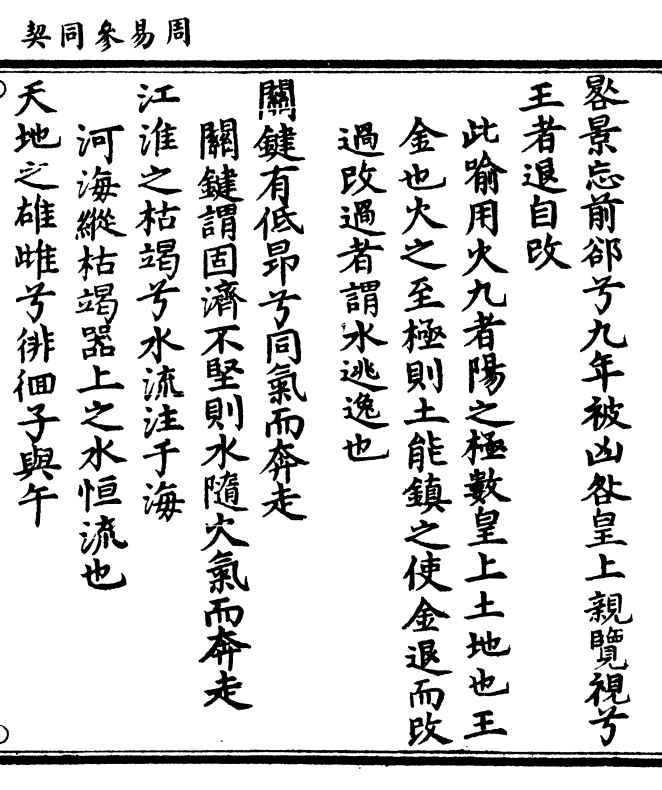 周易參同契
晷景忘前郤兮九年被凶咎皇上親覽視兮
王者退自改
此喻用火九者陽之極數皇上土地也王
金也火之至極則土能鎮之使金退而改
過改過者謂水逃逸也
關鍵有低昂兮同氣而奔走
關鍵謂固濟不堅則水隨火氣而奔走
江淮之枯竭兮水流注于海
河海縱枯竭器上之水恒流也
天地之雄雌兮徘徊子與午